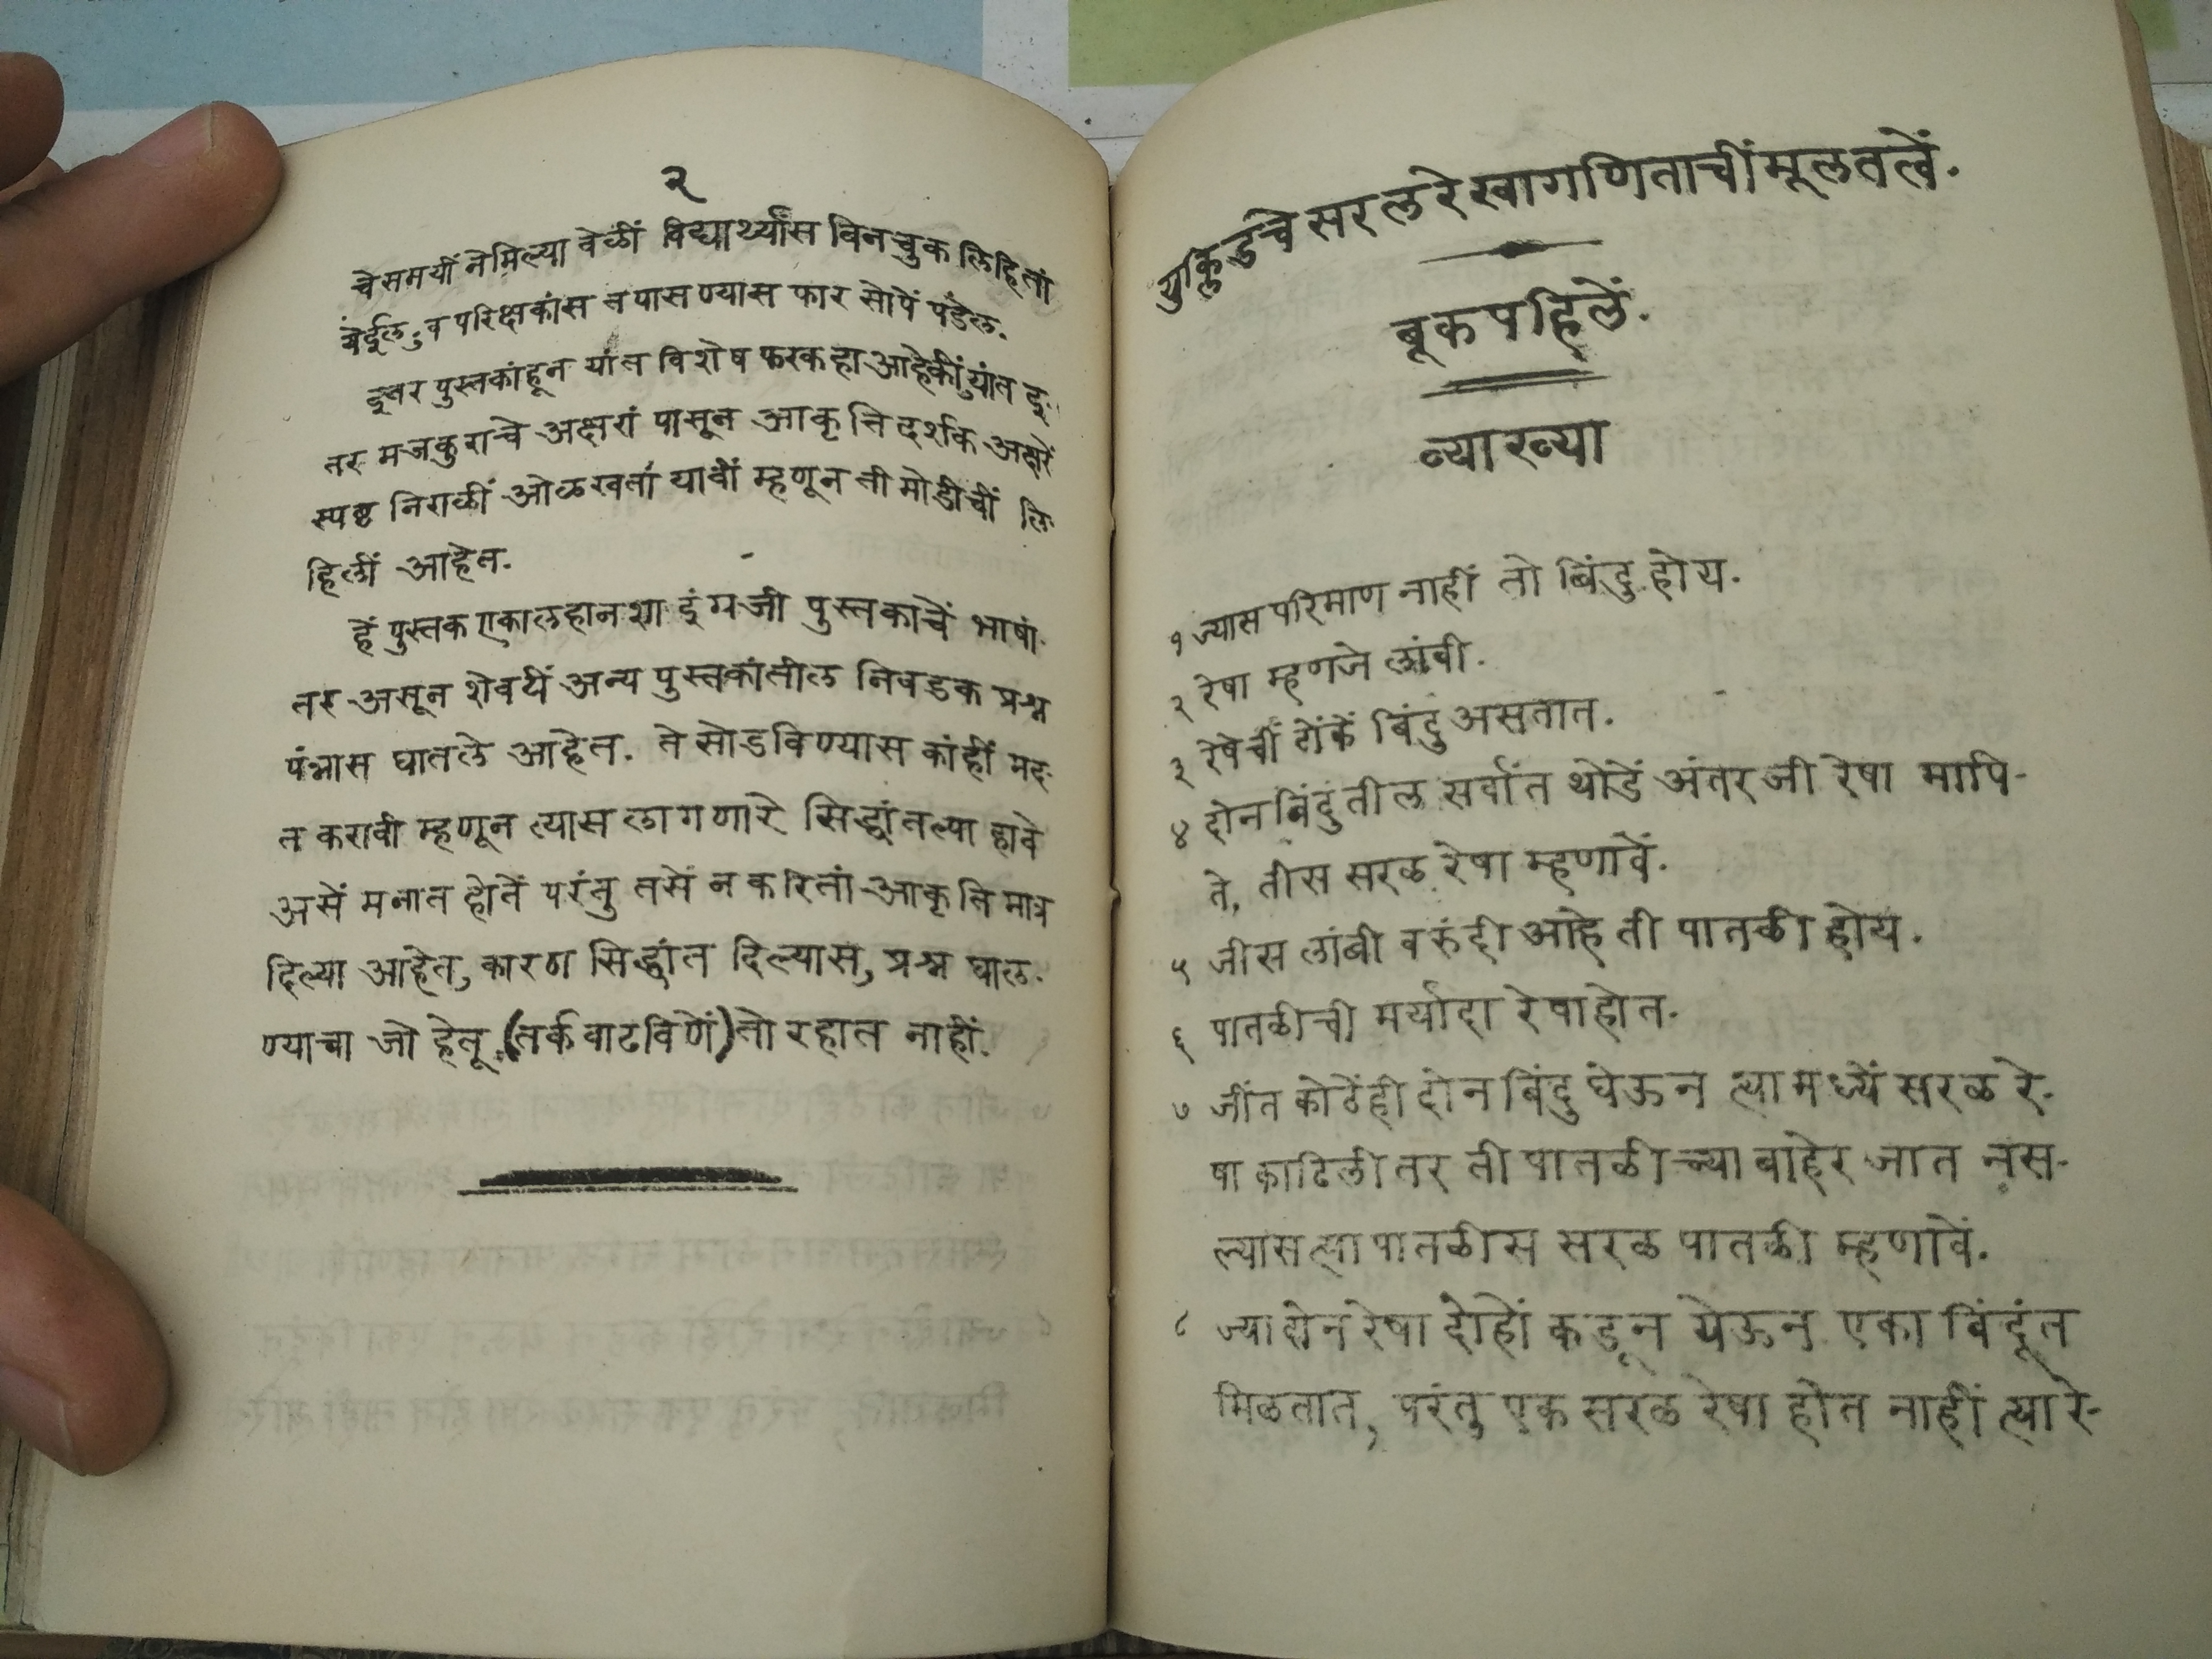 २
चे समयीं नेमिल्या वेळीं विद्यार्थ्यांस बिनचुक लिहितां
येईल, व परिक्षकांस तपासण्यास फार सोपें पडेल.
इतर पुस्तकांहून यांत विशेष फरक हा आहे कीं, यांत इ-
तर मजकुराचे अक्षरां पासून आकृति दर्शक अक्षरें
स्पष्ट निराळीं ओळखतां यावीं म्हणून ती मोडीचीं लि-
हिलीं आहेत.
हें पुस्तक एका लहानशा इंग्रजी पुस्तकाचें भाषां-
तर असून शेवटीं अन्य पुस्तकांतील निवडक प्रश्न
पंन्नास घातले आहेत. ते सोडविण्यास कांहीं मद-
त करावी म्हणून त्यास लागणारे सिद्धांत ल्पा हावे
असें मनात होतें परंतु तसें न करितां आकृति मात्र
दिल्या आहेत, कारण सिद्धांत दिल्यास, प्रश्न घाल-
ण्याचा जो हेतू (तर्क वाढविणें) तो रहात नाहीं.
युक्लिडचे सरल रेखागणिताचीं मूलतत्वें.
बूक पहिलें.
व्याख्या
१ ज्यास परिमाण नाहीं तो बिंदु होय.
२ रेषा म्हणजे लांबी.
३ रेषेचीं टोंकें बिंदु असतात.
४ दोन बिंदुंतील सर्वांत थोडें अंतर जी रेषा मापि-
ते, तीस सरळ रेषा म्हणावें.
५ जीस लांबी व रुंदी आहे ती पातळी होय.
६ पातळीची मर्यादा रेषा होत.
७ जींत कोठेंही दोन बिंदु घेऊन त्यामध्यें सरळ रे-
षा काढिली तर ती पातळीच्या बाहेर जात नस-
ल्यास त्या पातळीस सरळ पातळी म्हणावें.
८ ज्या दोन रेषा दोहों कडून येऊन एका बिंदूंत
मिळतात, परंतु एक सरळ रेषा होत नाहीं त्या रे-